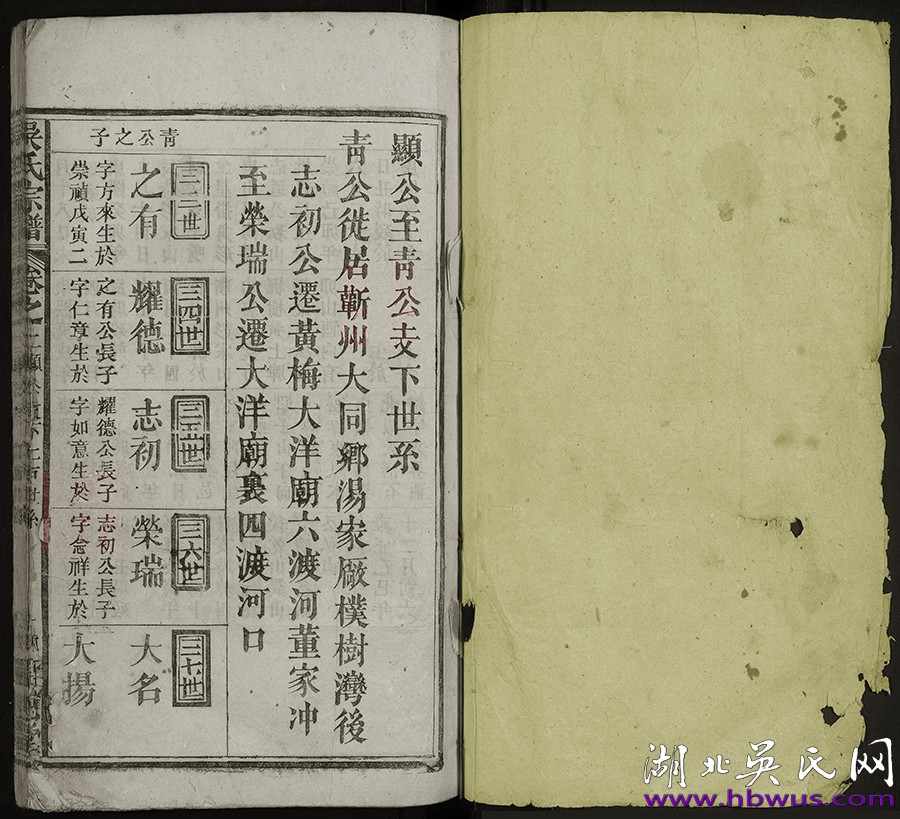 顯公至青公支下世系
青公徙居蘄州大同鄉湯家廠樸樹灣後
志初公遷黃梅大洋廟六渡河董家冲
至榮瑞公遷大洋廟裏四渡河口
青公之子
三三世
之有
字方來生於
崇禎戊寅二
三四世
耀德
之有公長子
字仁章生於
三五世
志初
耀德公長子
字如意生於
三六世
榮瑞
志初公長子
字念祥生於
三七世
大名
大揚
吳氏宗譜
卷之
湖北吳氏网
www.hbwus.com